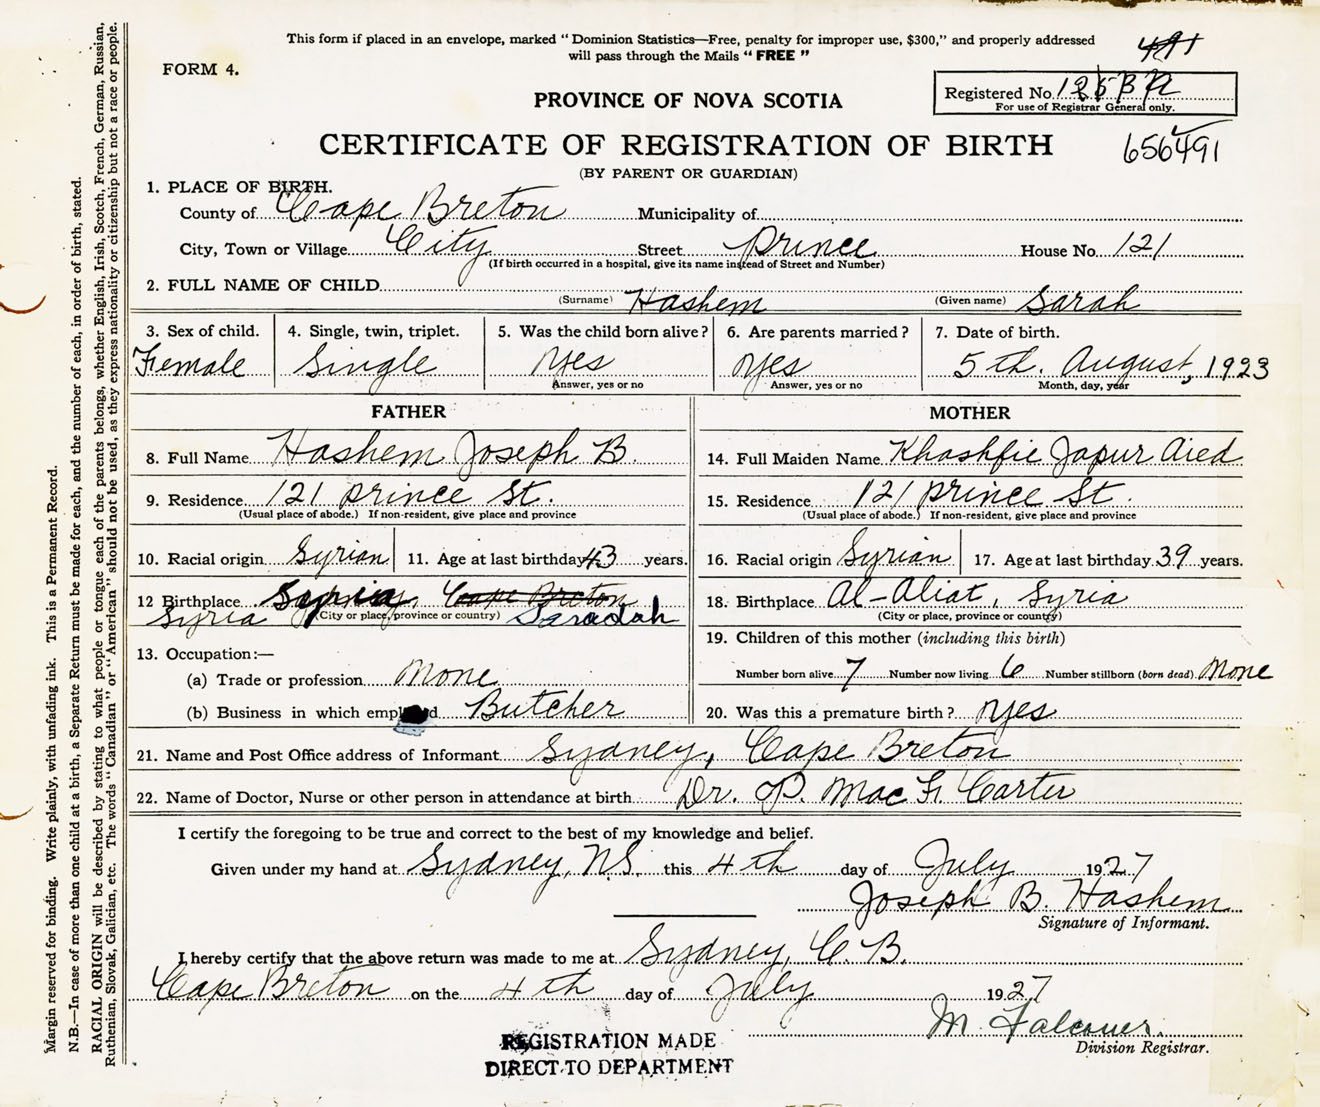 This form if placed in an envelope, marked “ Dominion Statistics—Free, penalty for improper use, $300,” and properly addressed
will pass through the Mails “ FREE ”
491
FORM 4.
Registered No.
For use of Registrar General only.
PROVINCE OF NOVA SCOTIA
CERTIFICATE OF REGISTRATION OF BIRTH
656491
(BY PARENT OR GUARDIAN)
1. PLACE OF BIRTH.
County of Cape Breton Municipality of
City, Town or Village City Street Prince House No. 121
(If birth occurred in a hospital, give its name instead of Street and Number)
2. FULL NAME OF CHILD
(Surname) Hashem (Given name) Sarah
3. Sex of child. 4. Single, twin, triplet. 5. Was the child born alive? 6. Are parents married? 7. Date of birth.
Female Single yes yes 5 th. August, 1923
Answer, yes or no Answer, yes or no Month, day, year
FATHER
8. Full Name Hashem Joseph B.
9. Residence 121 Prince St.
(Usual place of abode.) If non-resident, give place and province
10. Racial origin Syrian 11. Age at last birthday 43 years.
12 Birthplace Syria, Cape Breton
Syria (City or place, province or country) Saradah
13. Occupation:—
(a) Trade or profession None
(b) Business in which employed Butcher
MOTHER
14. Full Maiden Name Khashfie Japur Aied
15. Residence 121 Prince St.
(Usual place of abode.) If non-resident, give place and province
16. Racial origin Syrian 17. Age at last birthday 39 years.
18. Birthplace Al-Aliat, Syria
(City or place, province or country)
19. Children of this mother (including this birth)
Number born alive 7 Number now living 6 Number stillborn (born dead) None
20. Was this a premature birth? yes
21. Name and Post Office address of Informant Sydney, Cape Breton
22. Name of Doctor, Nurse or other person in attendance at birth Dr. P. Mac F. Carter
I certify the foregoing to be true and correct to the best of my knowledge and belief.
Given under my hand at Sydney, N.S. this 4 th day of July 1927
Joseph B. Hashem
Signature of Informant.
I hereby certify that the above return was made to me at Sydney, C. B.
Cape Breton on the 4 th day of July 1927
M. Falconer.
Division Registrar.
REGISTRATION MADE
DIRECT TO DEPARTMENT
Margin reserved for binding. Write plainly, with unfading ink. This is a Permanent Record.
N.B.—In case of more than one child at a birth, a Separate Return must be made for each, and the number of each, in order of birth, stated.
RACIAL ORIGIN will be described by stating to what people or tongue each of the parents belongs, whether English, Irish, Scotch, French, German, Russian,
Ruthenian, Slovak, Galician, etc. The words “ Canadian ” or “ American ” should not be used, as they express nationality or citizenship but not a race or people.